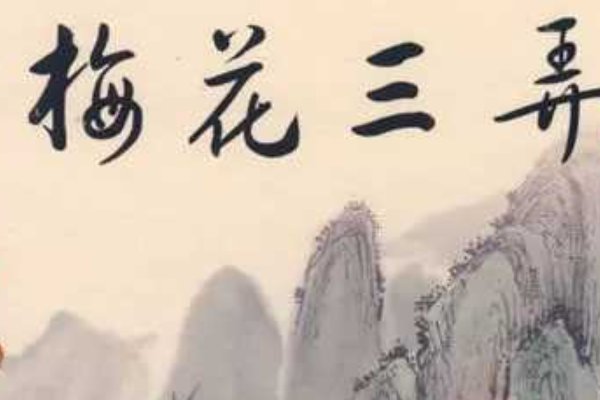 梅花三弄